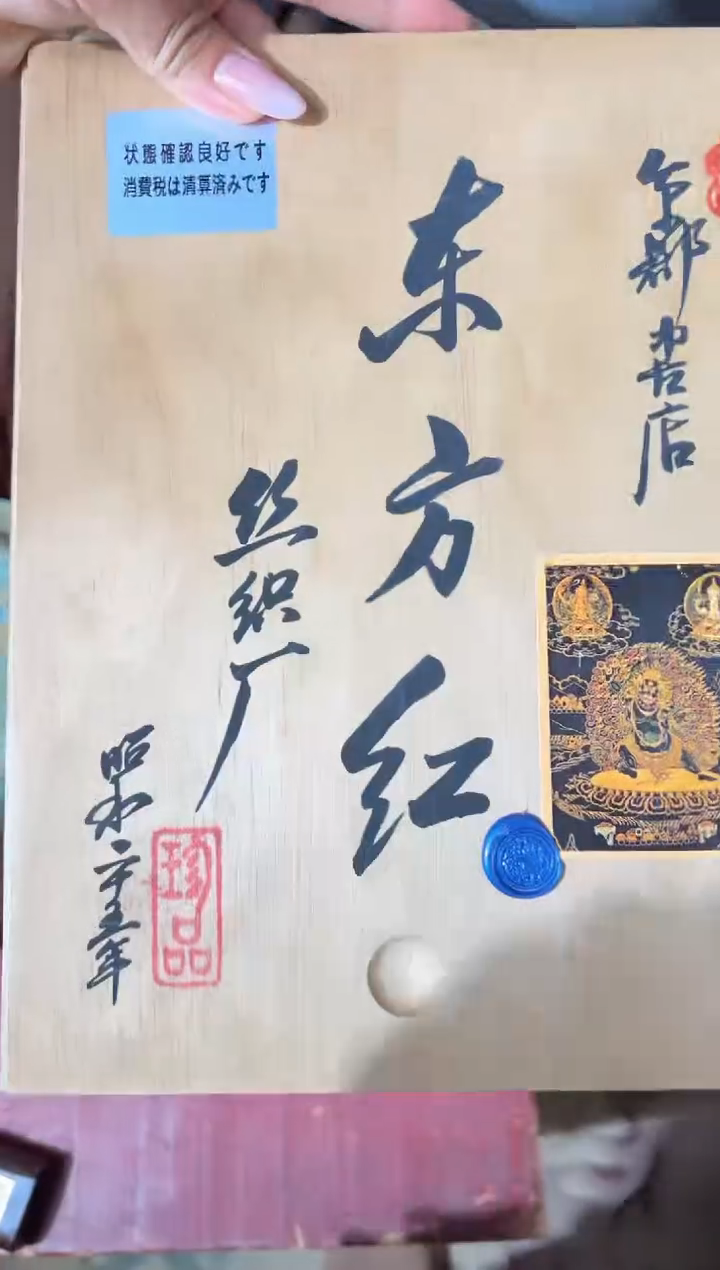 状態確認良好です
消費税は清算済みです
京都書店
东方红
丝织厂
昭和二十五年
珍品